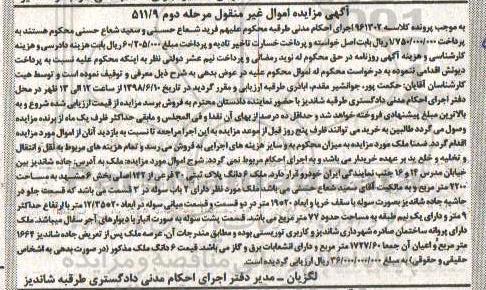 آگهی مزایده اموال غیر منقول مرحله دوم ۵۱۱/۹
به موجب پرونده کلاسه ۹۶۱۳۰۲ اجرای احکام مدنی طرقبه محکوم علیهم فرید شعاع حسنی و سعید شعاع حسنی محکوم هستند به
پرداخت ۱/۷۵۰/۰۰۰/۰۰۰ ریال بابت اصل خواسته و پرداخت خسارت تاخیر تادیه و پرداخت مبلغ ۶۰/۲۰۵/۰۰۰ ریال بابت هزینه دادرسی و هزینه
کارشناسی و هزینه آگهی روزنامه در حق محکوم له نوید رمضانی و پرداخت نیم عشر دولتی نظر به اینکه محکوم علیه نسبت به پرداخت
دیونش اقدامی ننموده به درخواست محکوم له اموال محکوم علیه در عوض بدهی به شرح ذیل معرفی و توقیف نموده است و توسط هیت
کارشناسان آقایان: حکمت پور، جوانشیر مقدم، اباذری طرقبه ارزیابی و مقرر گردید در تاریخ ۱۳۹۸/۶/۱۰ از ساعت ۱۲ الی ۱۳ ظهر در محل
دفتر اجرای احکام مدنی دادگستری طرقبه شاندیز با حضور نماینده دادستان محترم به فروش برسد مزایده از قیمت ارزیابی شده شروع و به
بالاترین مبلغ پیشنهادی فروخته خواهد شد و حداقل ده درصد از بهای آن نقدا و فی المجلس و مابقی حداکثر ظرف یک ماه از برنده مزایده
وصول می گردد طالبین به خرید می توانند ظرف پنج روز قبل از موعد مزایده به این اجرا مراجعه تا نسبت به بازدید آنان از اموال مورد مزایده
اقدام گردد. ضمنا ملک مورد مزایده به میزان محکوم به و سایر هزینه های اجرایی به فروش می رسد و تمام هزینه های مربوط به نقل و انتقال
و تخلیه و خلع ید بر عهده خریدار می باشد و به اجرای احکام مربوط نمی گردد. شرح اموال مورد مزایده: ملک به آدرس: جاده شاندیز بین
خیابان مدرس ۱۴ و ۱۶ جنب نمایندگی ایران خودرو قرار دارد. ملک ۶ دانگ پلاک ثبتی ۳۰ فرعی از ۱۲۲ اصلی بخش ۶ مشهد به مساحت
۲۲۰۰ متر مربع و به مالکیت آقای سعید شعاع حسنی می باشد ملک مورد نظر دارای ۲ باب سوله در ۲ قسمت می باشد که قسمت جلو در
حاشیه جاده شاندیز بصورت سوله با سقف خرپا و ابعاد ۱۹۵۲۰ متر در دو قسمت و قسمت میانی سوله در ابعاد ۱۲/۳۵۲۰ متر با ارتفاع حداکثر
۹ متر و دارای یک نیم طبقه به مساحت حدود ۷۷ متر مربع می باشد. قسمت پشت سوله به صورت انبار با دیوارهای آجر سفال میباشد. ملک
دارای پروانه ساختمان صادره شهرداری شاندیز و کاربری توریستی بوده و مطابق مندرجات آن، عرصه ملک پس از تعریض جاده شاندیز ۱۶۶۴
متر مربع و اعیان آن جمعا ۱۷۲۷/۶۰ متر مربع و دارای انشعابات برق و گاز می باشد. قیمت ۶ دانگ ملک مذکور (در صورت بدهی به اشخاص
حقیقی و حقوقی) به مبلغ ۳۶/۰۰۰/۰۰۰/۰۰۰ ریال ارزیابی گردیده است.
لگزیان – مدیر دفتر اجرای احکام مدنی دادگستری طرقبه شاندیز